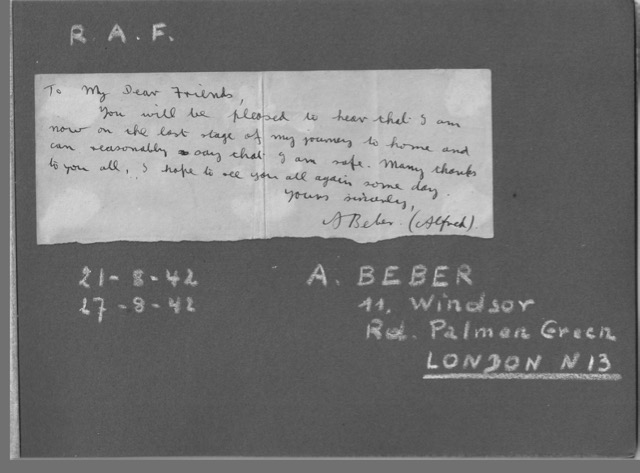 R. A. F.
To My Dear Friends,
You will be pleased to hear that I am
now on the last stage of my journey to home and
can reasonably say that I am safe. Many thanks
to you all, I hope to see you all again some day.
Yours sincerely,
A Beber. (Alfred).
21-8-42
27-8-42
A. BEBER
11, Windsor
Rd. Palmen Green
LONDON N 13